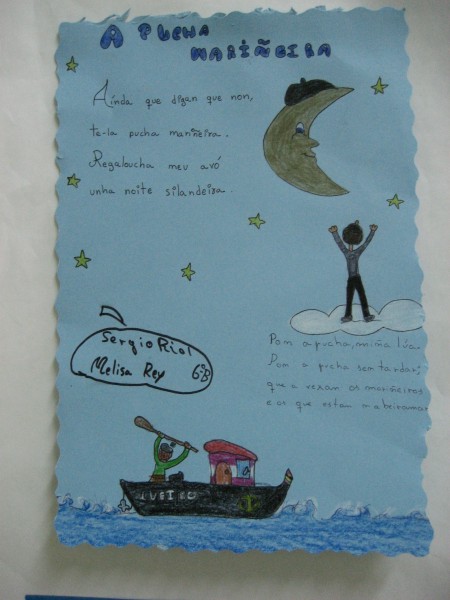 A PUCHA
MARIÑEIRA
Aínda que digan que non,
te-la pucha mariñeira.
Regaloucha meu avó
unha noite silandeira.
Sergio Rial
Melisa Rey 6ºB
Pon a pucha, miña lúa.
Pon a pucha sen tardar,
que a vexan os mariñeiros
e os que están na beiramar